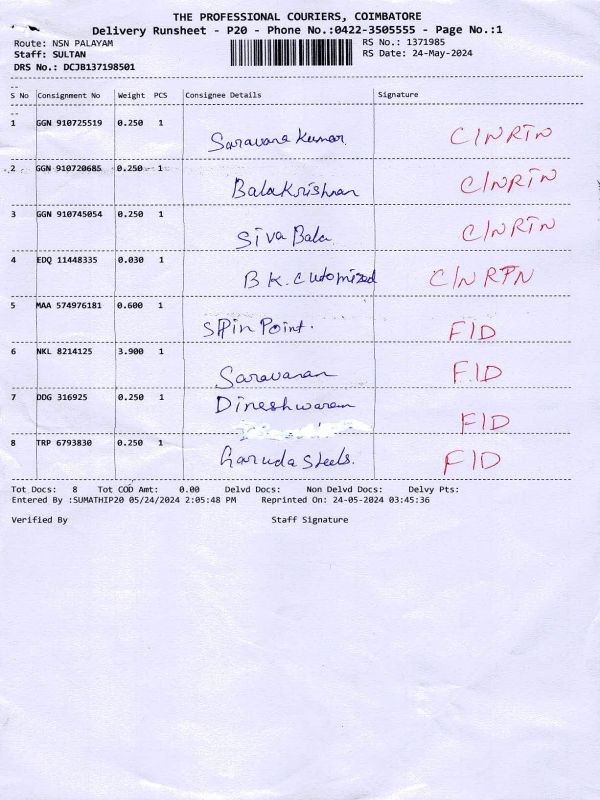 THE PROFESSIONAL COURIERS, COIMBATORE
Delivery Runsheet - P20 - Phone No.:0422-3505555 - Page No.:1
Route: NSN PALAYAM RS No.: 1371985
Staff: SULTAN RS Date: 24-May-2024
DRS No.: DCJB137198501
S No Consignment No Weight PCS Consignee Details Signature
1 GGN 910725519 0.250 1
Saravana Kumar. C/NRTN
2 GGN 910720685 0.250 1
Balakrishnan C/NRTN
3 GGN 910745054 0.250 1
Siva Bala C/NRTN
4 EDQ 11448335 0.030 1
B K. Cutomized C/NRTN
5 MAA 574976181 0.600 1
SPin Point. FID
6 NKL 8214125 3.900 1
Saravanan F.ID
7 DDG 316925 0.250 1
Dineshwaran FID
8 TRP 6793830 0.250 1
Garuda Steels. FID
Tot Docs: 8 Tot COD Amt: 0.00 Delvd Docs: Non Delvd Docs: Delvy Pts:
Entered By :SUMATHIP20 05/24/2024 2:05:48 PM Reprinted On: 24-05-2024 03:45:36
Verified By Staff Signature